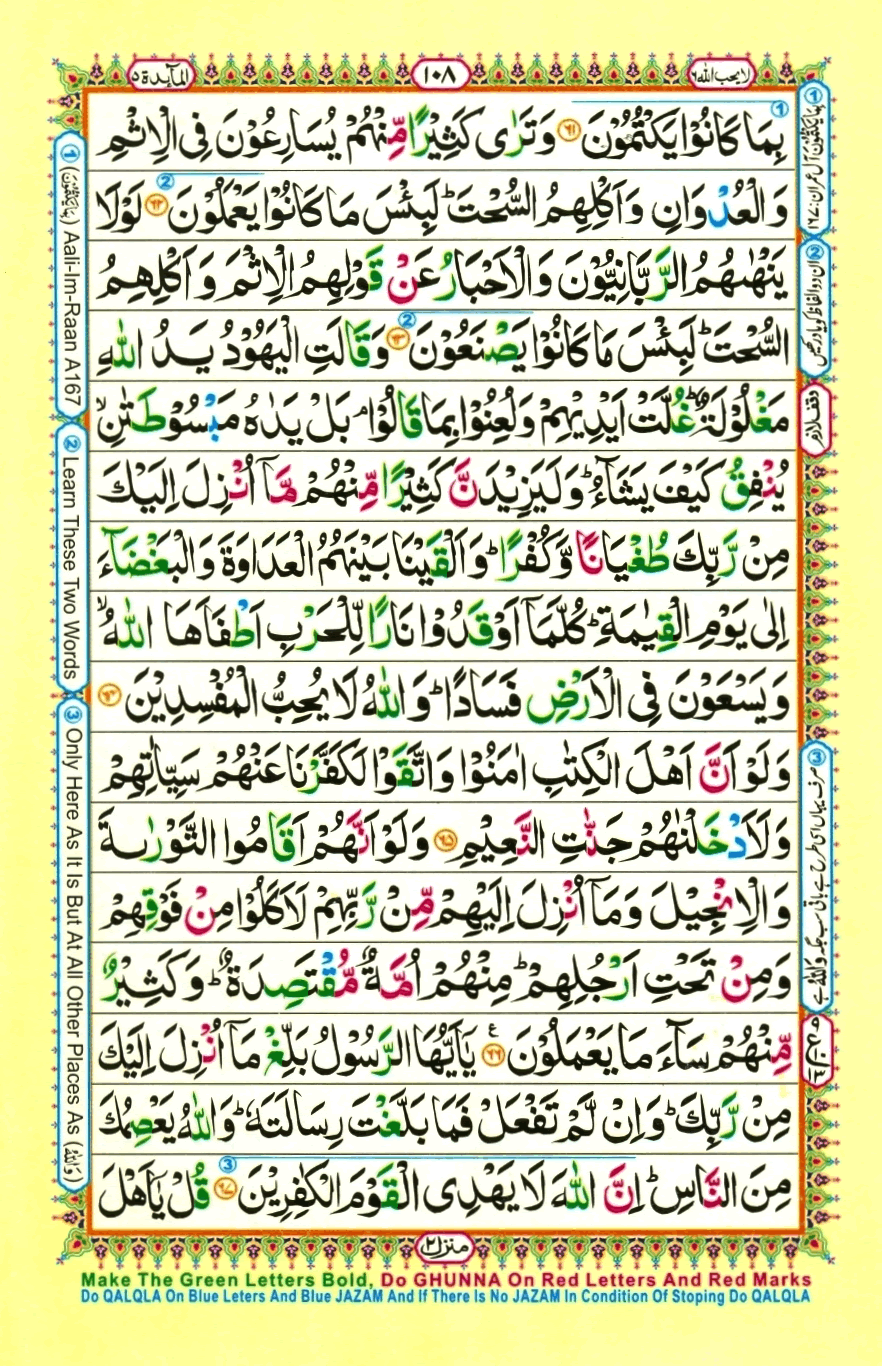 المآئدة ٥
١٠٨
لا يحب الله ٦
بِمَا كَانُوْا يَكْتُمُوْنَ ﴿۶۱﴾ وَتَرٰى كَثِيْرًا مِّنْهُمْ يُسَارِعُوْنَ فِى الْاِثْمِ
وَالْعُدْوَانِ وَاَكْلِهِمُ السُّحْتَ ؕ لَبِئْسَ مَا كَانُوْا يَعْمَلُوْنَ ﴿۶۲﴾ لَوْلَا
يَنْهٰىهُمُ الرَّبَّانِيُّوْنَ وَالْاَحْبَارُ عَنْ قَوْلِهِمُ الْاِثْمَ وَاَكْلِهِمُ
السُّحْتَ ؕ لَبِئْسَ مَا كَانُوْا يَصْنَعُوْنَ ﴿۶۳﴾ وَقَالَتِ الْيَهُوْدُ يَدُ اللّٰهِ
مَغْلُوْلَةٌ ؕ غُلَّتْ اَيْدِيْهِمْ وَلُعِنُوْا بِمَا قَالُوْا ۘ بَلْ يَدٰهُ مَبْسُوْطَتٰنِ ۙ
يُنْفِقُ كَيْفَ يَشَآءُ ؕ وَلَيَزِيْدَنَّ كَثِيْرًا مِّنْهُمْ مَّاۤ اُنْزِلَ اِلَيْكَ
مِنْ رَّبِّكَ طُغْيَانًا وَّكُفْرًا ؕ وَاَلْقَيْنَا بَيْنَهُمُ الْعَدَاوَةَ وَالْبَغْضَآءَ
اِلٰى يَوْمِ الْقِيٰمَةِ ؕ كُلَّمَاۤ اَوْقَدُوْا نَارًا لِّلْحَرْبِ اَطْفَاَهَا اللّٰهُ ۙ
وَيَسْعَوْنَ فِى الْاَرْضِ فَسَادًا ؕ وَاللّٰهُ لَا يُحِبُّ الْمُفْسِدِيْنَ ﴿۶۴﴾
وَلَوْ اَنَّ اَهْلَ الْكِتٰبِ اٰمَنُوْا وَاتَّقَوْا لَكَفَّرْنَا عَنْهُمْ سَيِّاٰتِهِمْ
وَلَاَدْخَلْنٰهُمْ جَنّٰتِ النَّعِيْمِ ﴿۶۵﴾ وَلَوْ اَنَّهُمْ اَقَامُوا التَّوْرٰىةَ
وَالْاِنْجِيْلَ وَمَاۤ اُنْزِلَ اِلَيْهِمْ مِّنْ رَّبِّهِمْ لَاَكَلُوْا مِنْ فَوْقِهِمْ
وَمِنْ تَحْتِ اَرْجُلِهِمْ ؕ مِنْهُمْ اُمَّةٌ مُّقْتَصِدَةٌ ؕ وَكَثِيْرٌ
مِّنْهُمْ سَآءَ مَا يَعْمَلُوْنَ ﴿۶۶﴾ ع يٰۤاَيُّهَا الرَّسُوْلُ بَلِّغْ مَاۤ اُنْزِلَ اِلَيْكَ
مِنْ رَّبِّكَ ؕ وَاِنْ لَّمْ تَفْعَلْ فَمَا بَلَّغْتَ رِسَالَتَهٗ ؕ وَاللّٰهُ يَعْصِمُكَ
مِنَ النَّاسِ ؕ اِنَّ اللّٰهَ لَا يَهْدِى الْقَوْمَ الْكٰفِرِيْنَ ﴿۶۷﴾ قُلْ يٰۤاَهْلَ
① بما يكتمون آل عمران: ١٦٧
② ان دو الفاظ کو یاد رکھیں
وقف لازم
③ صرف یہاں اسی طرح ہے باقی سب جگہ واللہ ہے
① (بما يكتمون) Aali-Im-Raan A167
② Learn These Two Words
③ Only Here As It Is But At All Other Places As (والله)
منزل ٢
Make The Green Letters Bold, Do GHUNNA On Red Letters And Red Marks
Do QALQLA On Blue Leters And Blue JAZAM And If There Is No JAZAM In Condition Of Stoping Do QALQLA